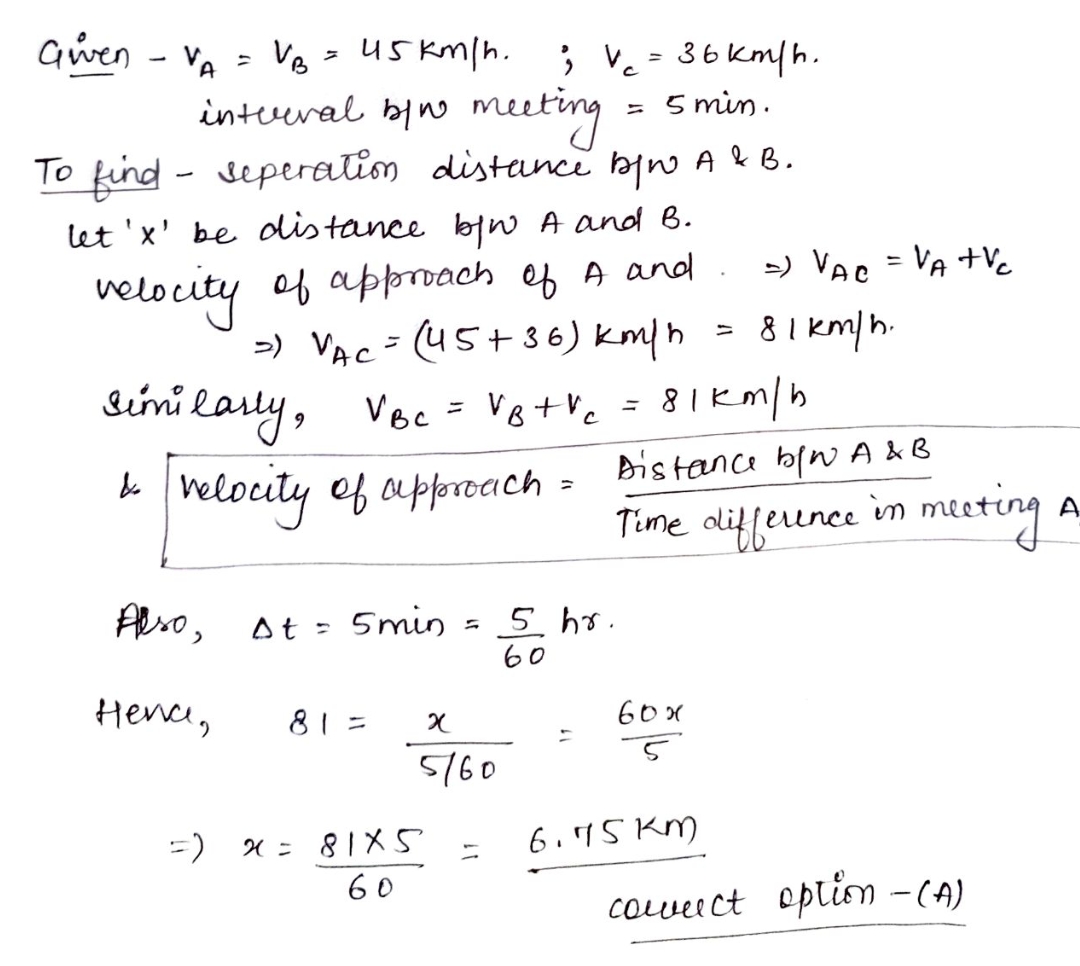 Given - V_A = V_B = 45 km/h. ; V_c = 36 km/h.
interval b/w meeting = 5 min.
To find - seperation distance b/w A & B.
let 'x' be distance b/w A and B.
velocity of approach of A and . => V_AC = V_A + V_c
=> V_AC = (45+36) km/h = 81 km/h.
similarly, V_BC = V_B + V_c = 81 km/h
& velocity of approach = Distance b/w A & B / Time difference in meeting A
Also, Δt = 5 min = 5/60 hr.
Hence, 81 = x / 5/60 = 60x/5
=> x = 81×5/60 = 6.75 Km
correct option - (A)